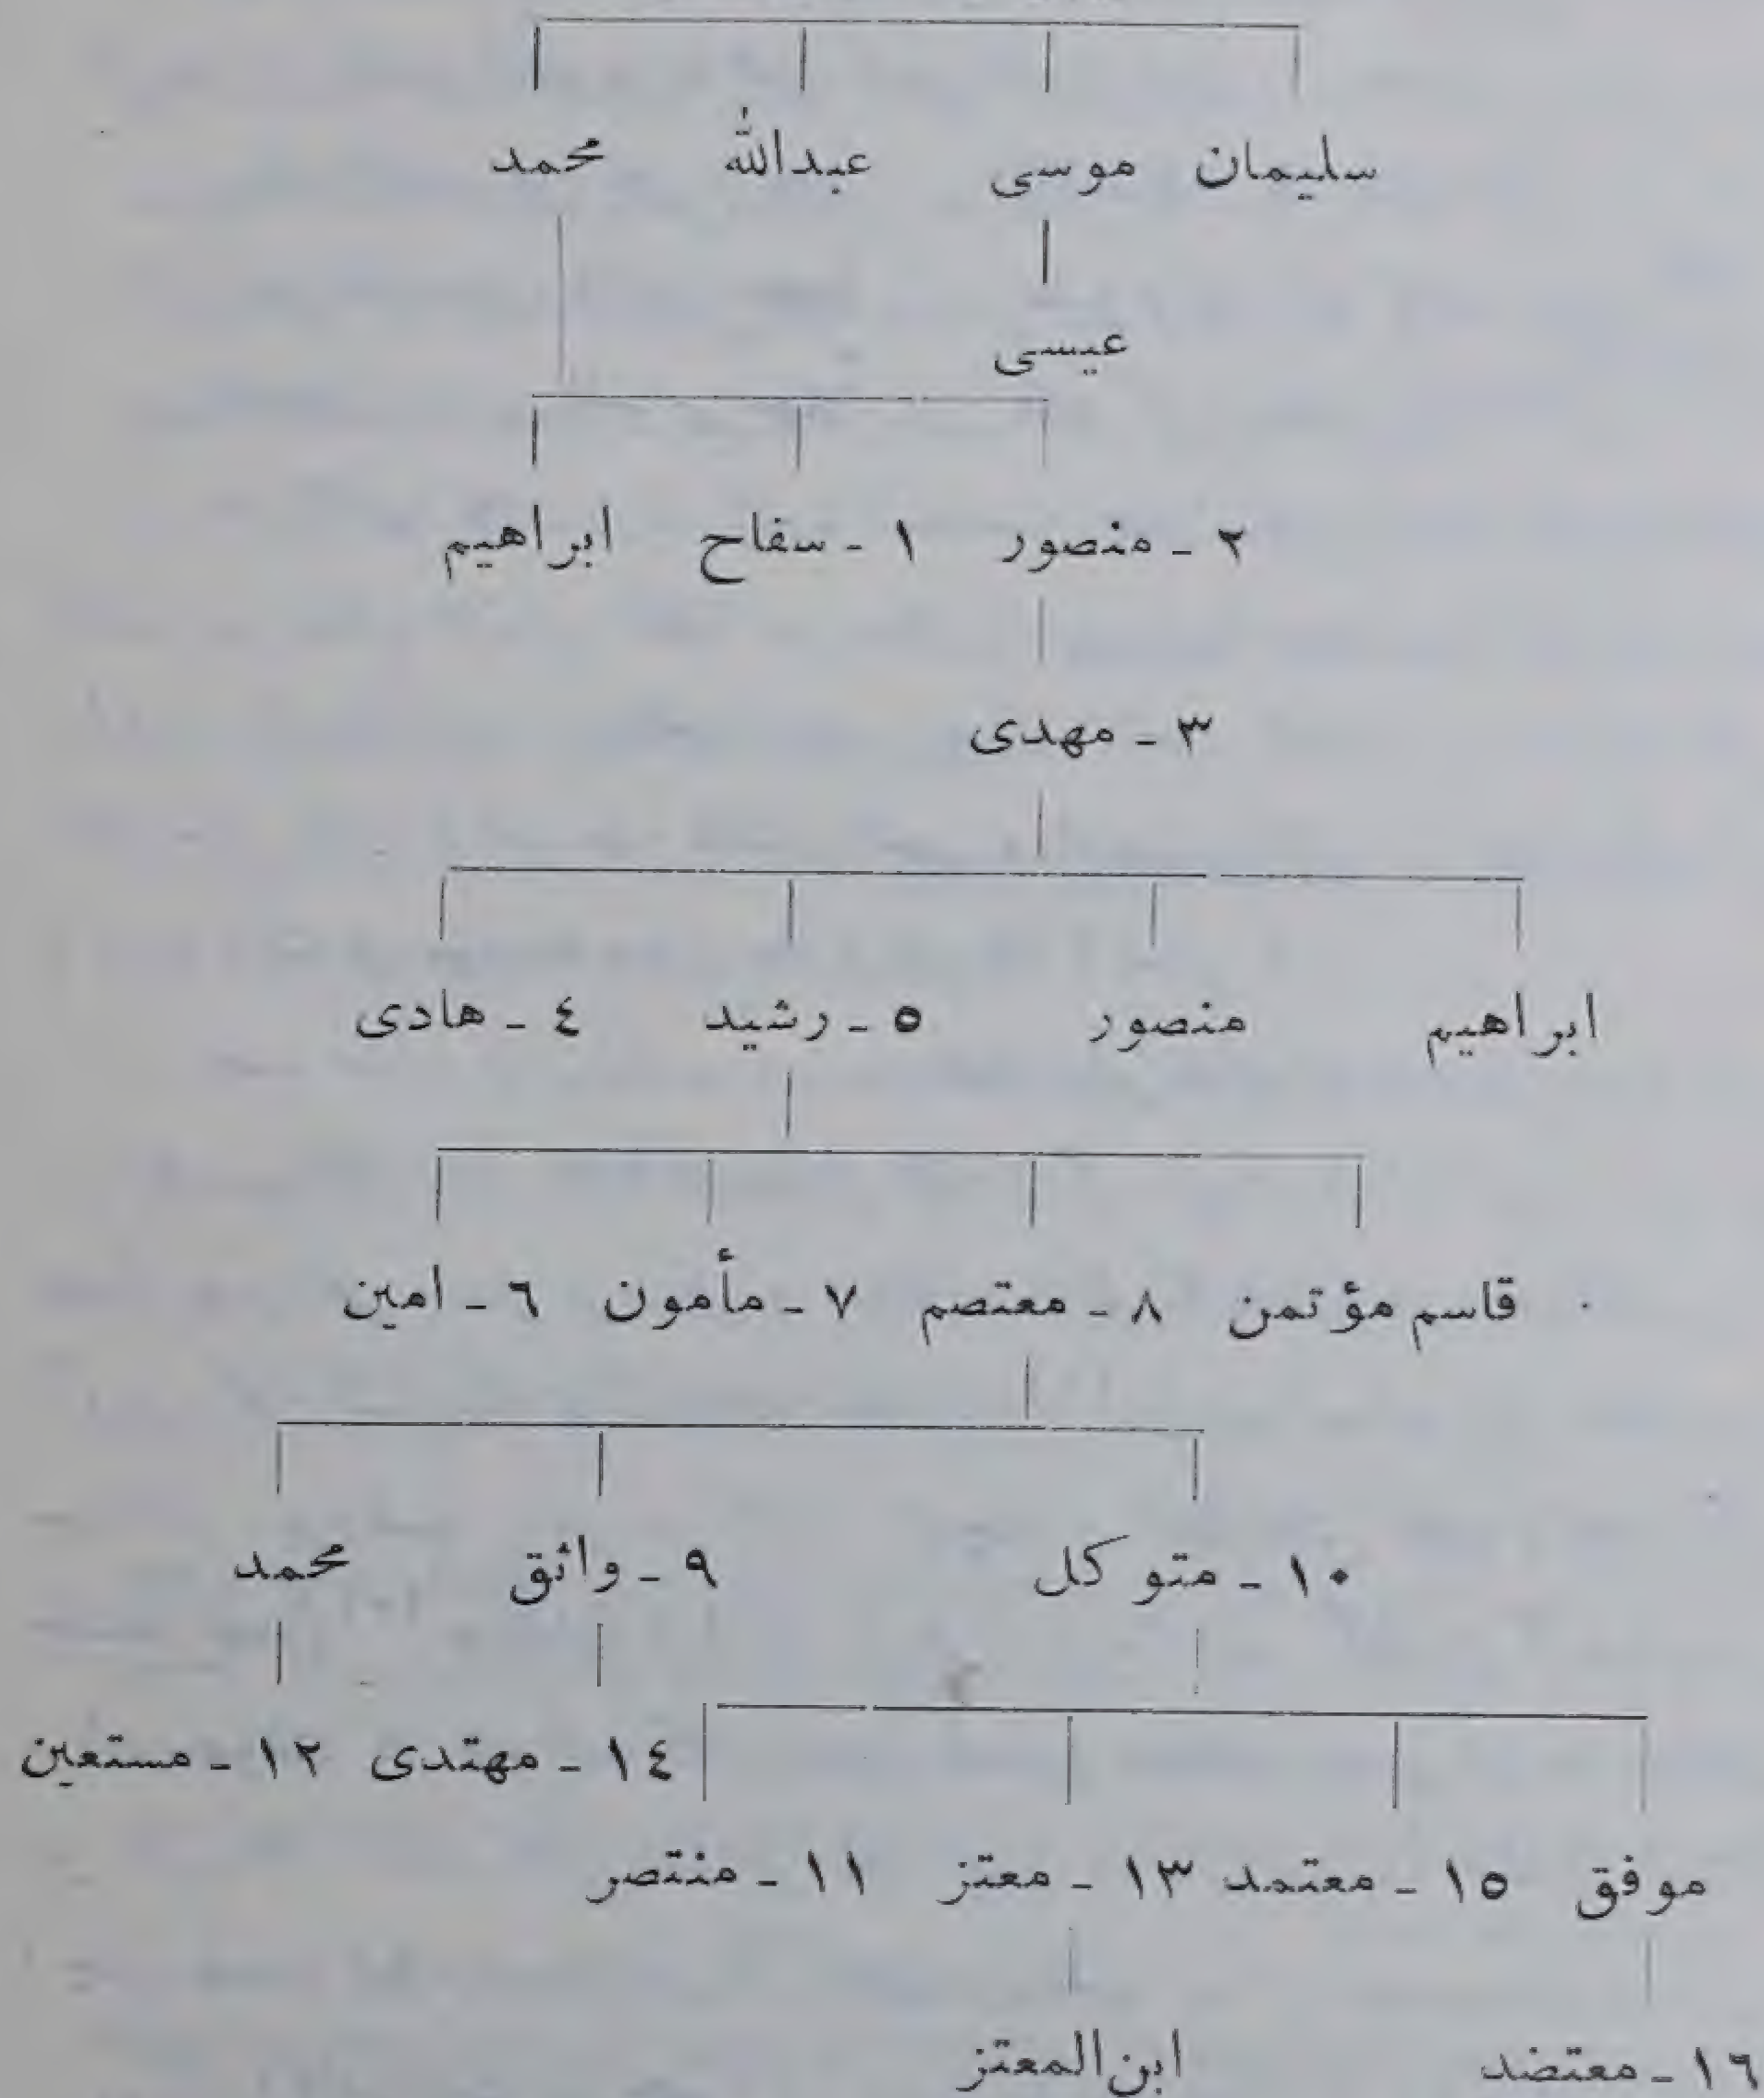 سلیمان موسی عبدالله محمد
عیسی
۲ - منصور ۱ - سفاح ابراهیم
۳ - مهدی
ابراهیم منصور ٥ - رشید ٤ - هادی
قاسم مؤتمن ۸ - معتصم ۷ - مأمون ٦ - امین
۱۰ - متوکل ۹ - واثق محمد
۱٤ - مهتدی ۱۲ - مستعین
موفق ۱٥ - معتمد ۱۳ - معتز ۱۱ - منتصر
۱٦ - معتضد ابن‌المعتز